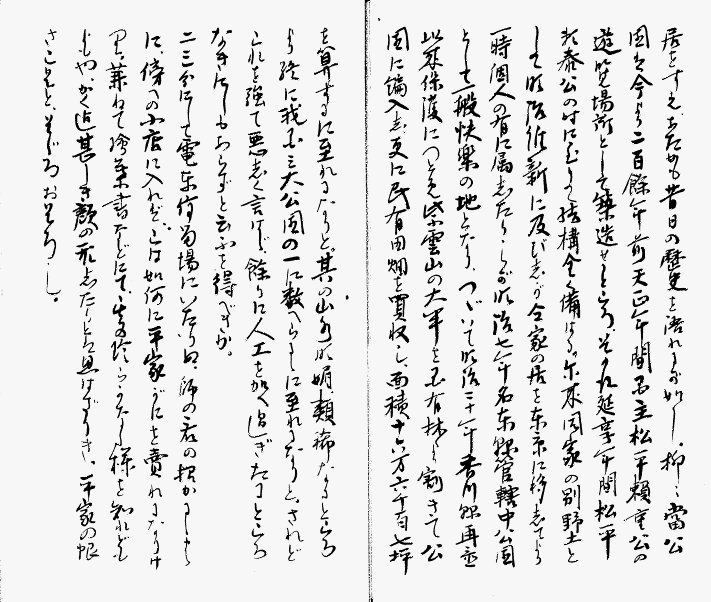 居をすゑ志たかも昔日の歴史を語れるが如し。抑々當公
園は今より二百餘年前天正年間国主松平頼重公の
遊覧場所として築造せしところ、その后延享年間松平
頼恭公の時に至り結構全く備はる。尓来同家の別野土と
して明治維新に及びしが全家の居を東京に移志てより
一時個人の有に属志たりしが明治七年名東縣管轄中公園
として一般快樂の地となり、つゞいて明治二十一年香川縣再置
以来保護につとめ紫雲山の大半を国有林より割きて公
園に編入志更に民有田畑を買收し、面積十六万六千百七坪
を算するに至れるなりと。其の山水明媚、類稀なるところ
より終に我国三大公園の一に数へらるゝに至れるなりと、されど
これを強て悪志く言はゞ餘りに人工を加へ過ぎたるところ
なきにしもあらずと云ふを得べきか。
二三分にして電車停留場にいたりぬ、師の君の招かるゝまゝ
に、傍への小店に入れば、こは如何に平家がにを賣れるなりけ
り、兼ねて繪葉書などにて、其の珍らかなる様を知れども
よもや、かく迄甚しき顔の形志たりとは思はざりき、平家の恨
さこそと、そゞろおそろし。